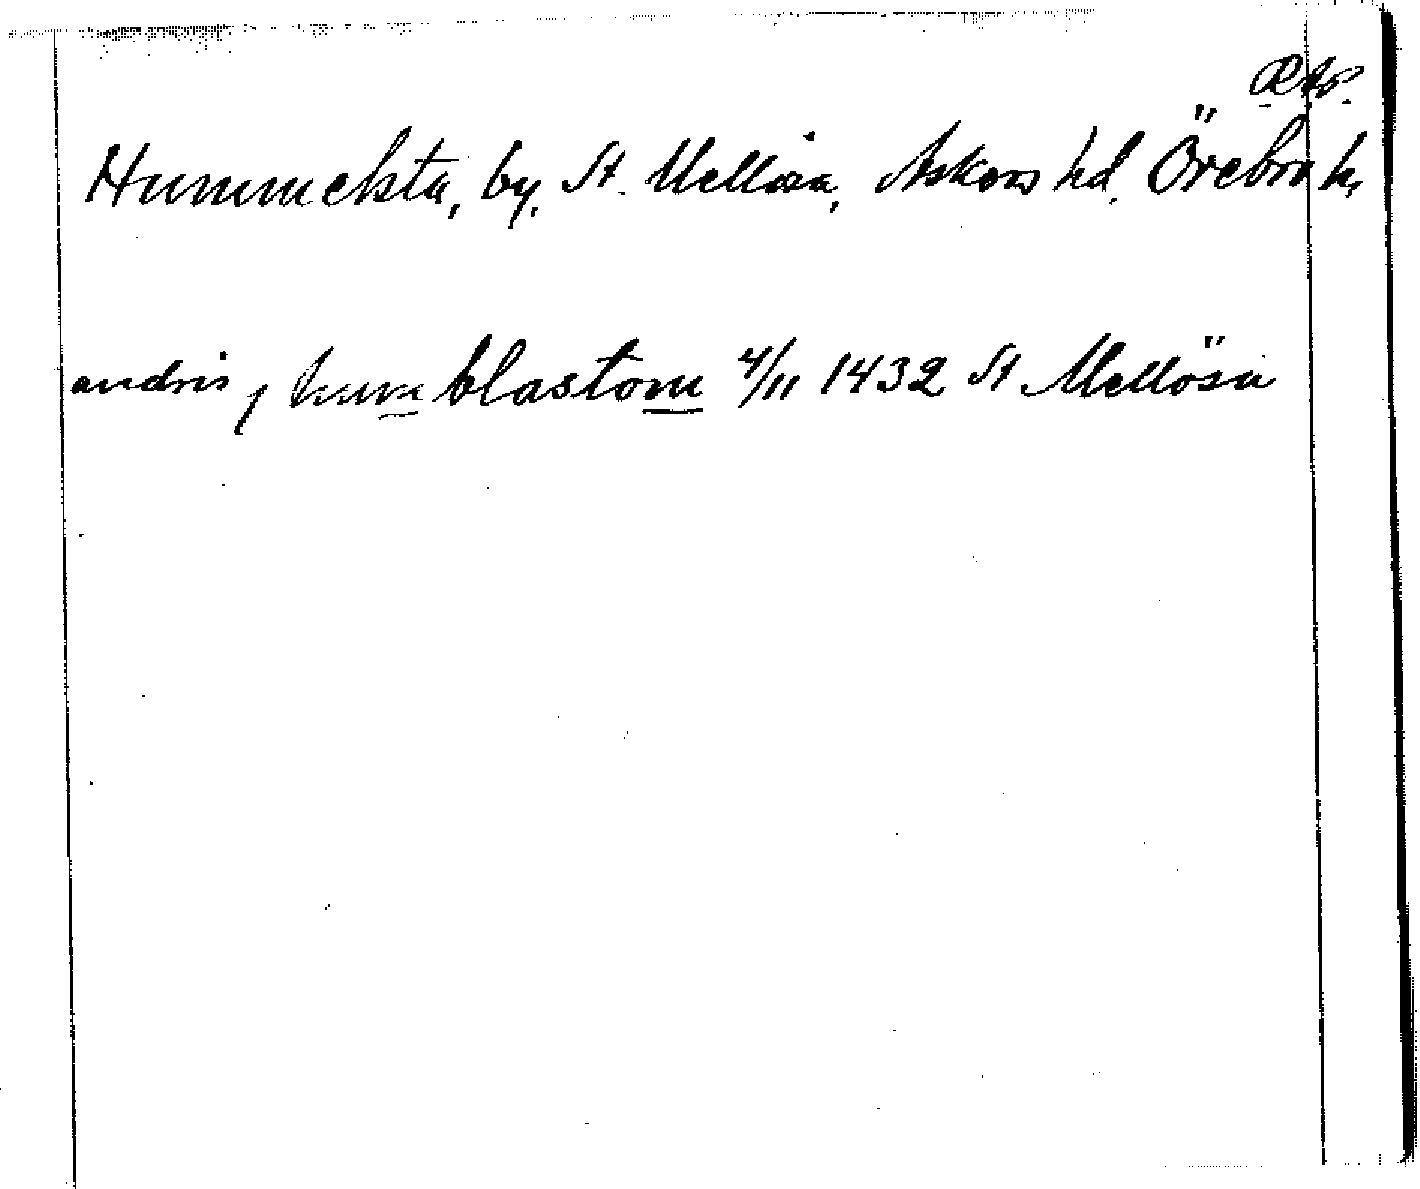 Hummelsta, by, St. Mellösa, Askers hd. Örebro l.
andris j humblastom 4/11 1432 St Mellösa